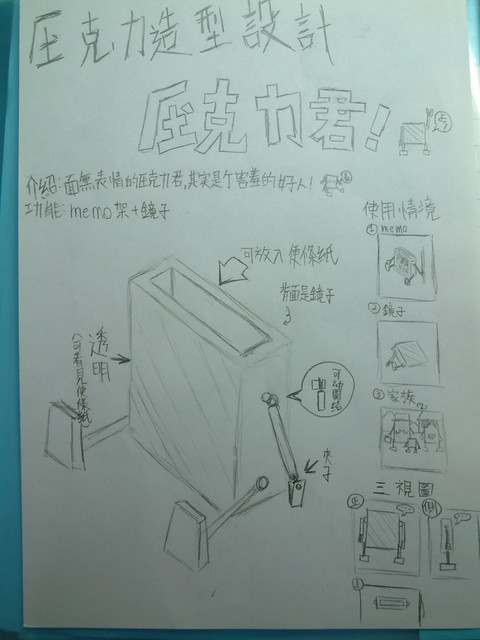 壓克力造型設計
壓克力君!
介紹:面無表情的壓克力君,其實是个害羞的好人!
功能:memo架+鏡子
使用情境
① memo
可放入便條紙
背面是鏡子
② 鏡子
透明
(可看見便條紙)
可動關節
③ 家族
夾子
三視圖
正
側
上